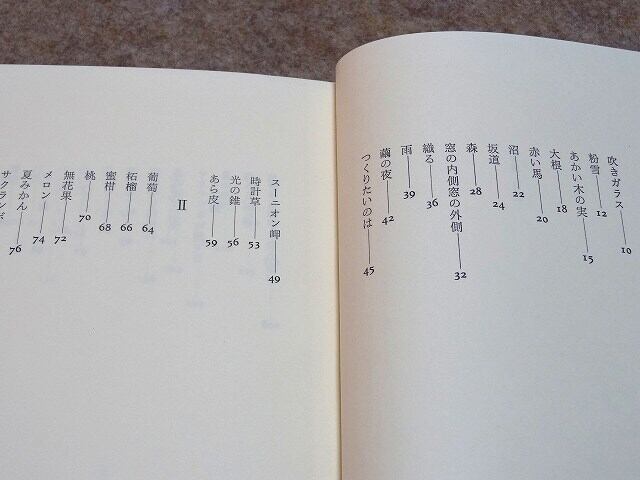 吹きガラス 10
粉雪 12
あかい木の実 15
大根 18
赤い馬 20
沼 22
坂道 24
森 28
窓の内側窓の外側 32
織る 36
雨 39
繭の夜 42
つくりたいのは 45
スーニオン岬 49
時計草 53
光の錐 56
あら皮 59
II
葡萄 64
柘榴 66
蜜柑 68
桃 70
無花果 72
メロン 74
夏みかん 76
サクランボ